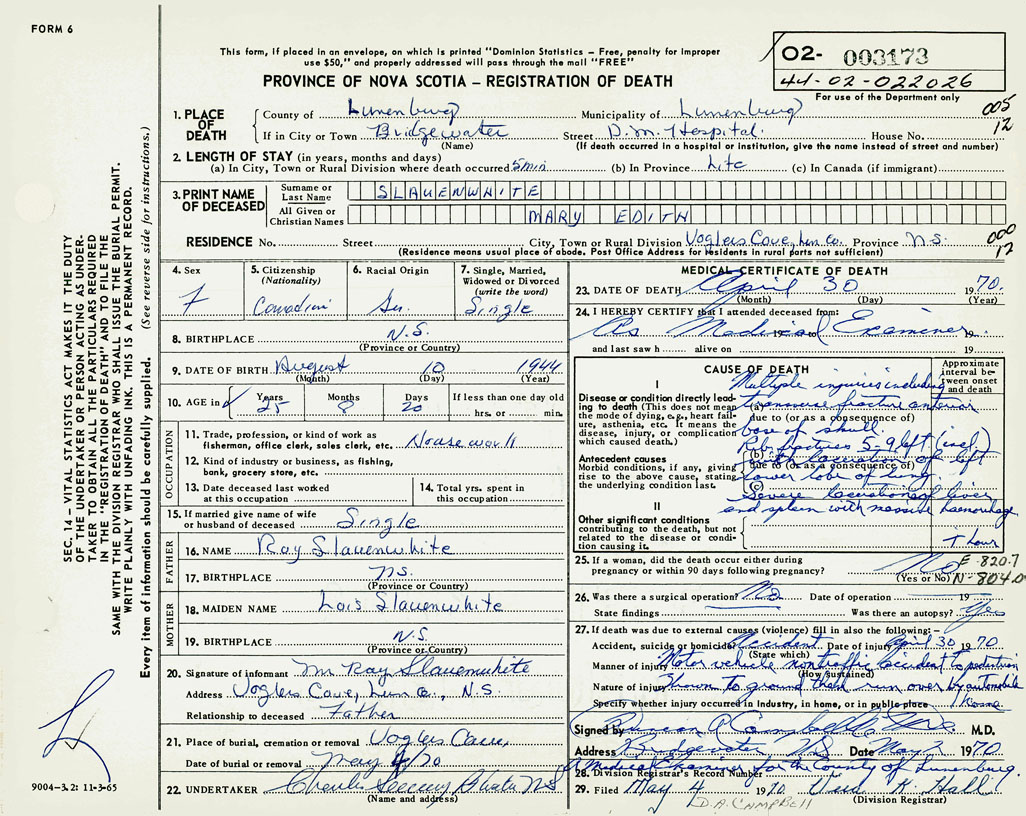 FORM 6
This form, if placed in an envelope, on which is printed "Dominion Statistics – Free, penalty for improper
use $50," and properly addressed will pass through the mail "FREE"
PROVINCE OF NOVA SCOTIA – REGISTRATION OF DEATH
02- 003173
44-02-022026
For use of the Department only
1. PLACE OF DEATH
County of Lunenburg Municipality of Lunenburg 005
If in City or Town Bridgewater Street D.M. Hospital. House No. 12
(Name) (If death occurred in a hospital or institution, give the name instead of street and number)
2. LENGTH OF STAY (in years, months and days)
(a) In City, Town or Rural Division where death occurred 5 min (b) In Province Life (c) In Canada (if immigrant)
3. PRINT NAME OF DECEASED
Surname or Last Name SLAUENWHITE
All Given or Christian Names MARY EDITH
RESIDENCE No. Street City, Town or Rural Division Voglers Cove, Lun Co. Province N.S. 000 12
(Residence means usual place of abode. Post Office Address for residents in rural parts not sufficient)
4. Sex F
5. Citizenship (Nationality) Canadian
6. Racial Origin
7. Single, Married, Widowed or Divorced (write the word) Single
8. BIRTHPLACE N.S.
(Province or Country)
9. DATE OF BIRTH August 10 1944
(Month) (Day) (Year)
10. AGE in Years 25 Months 8 Days 20 If less than one day old hrs. or min.
OCCUPATION
11. Trade, profession, or kind of work as fisherman, office clerk, sales clerk, etc.
12. Kind of industry or business, as fishing, bank, grocery store, etc.
13. Date deceased last worked at this occupation
14. Total yrs. spent in this occupation
15. If married give name of wife or husband of deceased Single
FATHER
16. NAME Roy Slauenwhite
17. BIRTHPLACE N.S.
(Province or Country)
MOTHER
18. MAIDEN NAME Lois Slauenwhite
19. BIRTHPLACE N.S.
(Province or Country)
20. Signature of informant Mr Roy Slauenwhite
Address Voglers Cove, Lun Co., N.S.
Relationship to deceased Father
21. Place of burial, cremation or removal Voglers Cove,
Date of burial or removal May /70
22. UNDERTAKER Charles
(Name and address)
MEDICAL CERTIFICATE OF DEATH
23. DATE OF DEATH April 30 1970.
(Month) (Day) (Year)
24. I HEREBY CERTIFY that I attended deceased from:
As Medical Examiner 19
and last saw h alive on 19
CAUSE OF DEATH
Approximate interval between onset and death
I
Disease or condition directly leading to death (This does not mean the mode of dying, e.g., heart failure, asthenia, etc. It means the disease, injury, or complication which caused death.)
(a) Multiple injuries including transverse fracture anterior
due to (or as a consequence of)
base of skull
Antecedent causes
Morbid conditions, if any, giving rise to the above cause, stating the underlying condition last.
(b) Rib fractures 5-9 left (incl.)
due to (or as a consequence of)
with laceration of left
lower lobe of lung.
Severe lacerations of liver
II
and spleen with massive haemorrhage
Other significant conditions contributing to the death, but not related to the disease or condition causing it.
1 hour
25. If a woman, did the death occur either during pregnancy or within 90 days following pregnancy? No
(Yes or No)
E-820.7
N-804.0
26. Was there a surgical operation? No Date of operation 19
State findings Was there an autopsy? Yes
27. If death was due to external causes (violence) fill in also the following:–
Accident, suicide or homicide? Accident Date of injury April 30 1970
(State which)
Manner of injury Motor vehicle nontraffic accident to pedestrian
(How sustained)
Nature of injury Thrown to ground then run over by automobile
Specify whether injury occurred in Industry, in home, or in public place
Signed by Campbell M.D.
Address Bridgewater NS Date May 1970
A Medical Examiner for the County of Lunenburg.
28. Division Registrar's Record Number
29. Filed May 4 1970 K. Hall
D.A. CAMPBELL (Division Registrar)
SEC. 14 – VITAL STATISTICS ACT MAKES IT THE DUTY
OF THE UNDERTAKER OR PERSON ACTING AS UNDERTAKER
TO OBTAIN ALL THE PARTICULARS REQUIRED
IN THE "REGISTRATION OF DEATH" AND TO FILE THE
SAME WITH THE DIVISION REGISTRAR WHO SHALL ISSUE THE BURIAL PERMIT.
WRITE PLAINLY WITH UNFADING INK. THIS IS A PERMANENT RECORD.
Every item of information should be carefully supplied. (See reverse side for instructions.)
9004-3.2: 11-3-65